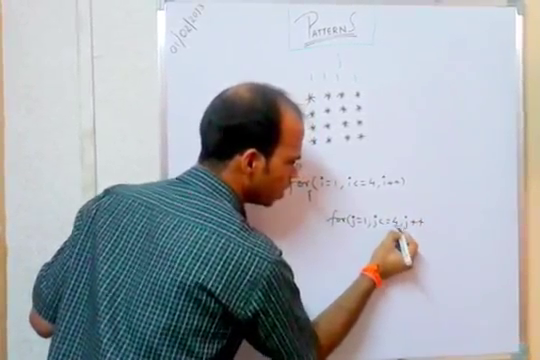 01/02/2013
PATTERNS
* * * *
* * * *
* * * *
* * * *
for(i=1, i<=4, i++)
for(j=1, j<=4, j++